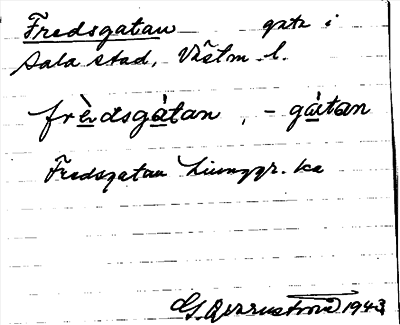 Fredsgatan gata i
Sala stad, Västm. l.
frèdsgàtan, -gàtan
Fredsgatan Ljunggr. ka
1943